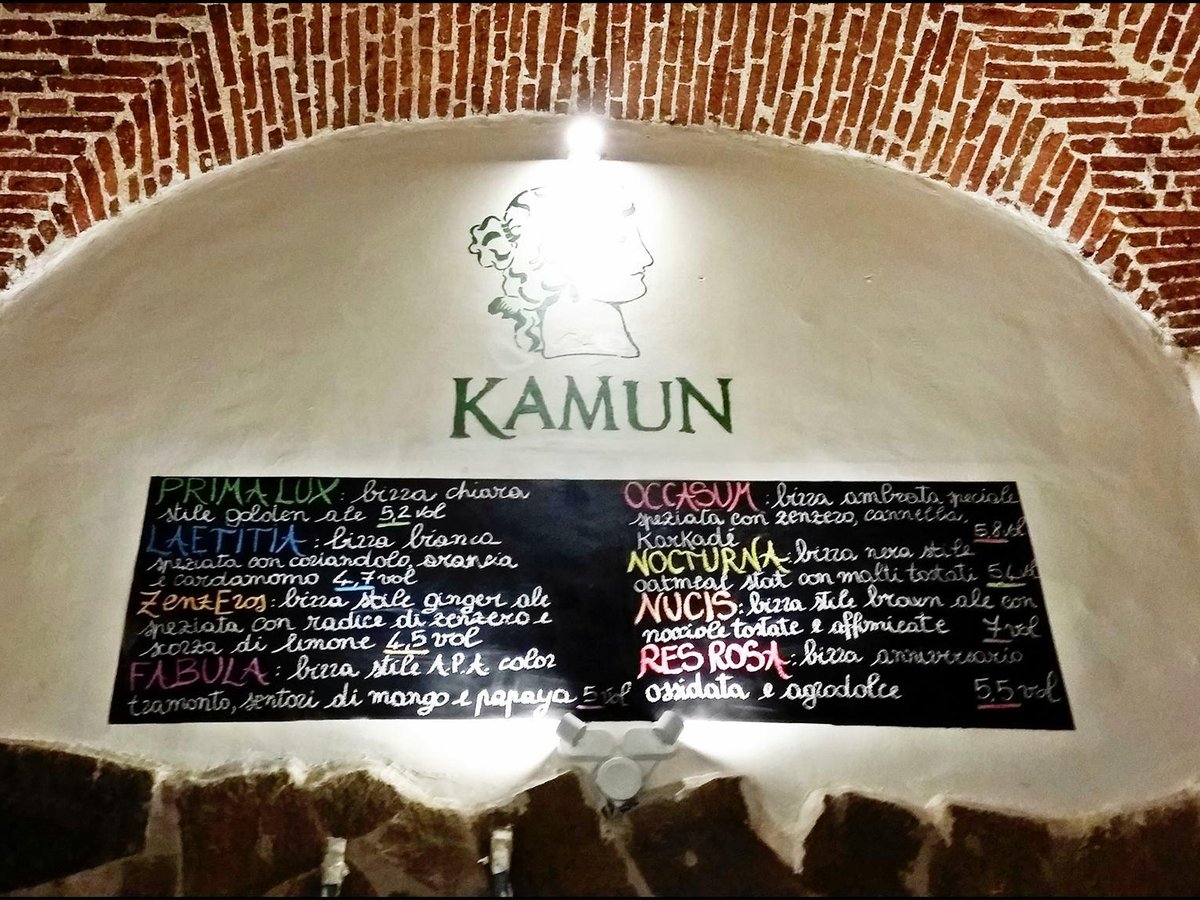 KAMUN
PRIMA LUX: bizza chiara
stile golden ale 5,2 vol
LAETITIA: bizza bianca
speziata con coziandolo, arancia
e cardamomo 4,7 vol
ZENZEROS: bizza stile ginger ale
speziata con radice di zenzero e
scozza di limone 4,5 vol
FABULA: bizza stile A.P.A. color
tramonto, sentori di mango e papaya 5 vol
OCCASUM: bizza ambrata speciale
speziata con zenzero, cannella,
Karkadé 5,8 vol
NOCTURNA: bizza nera stile
oatmeal stout con malti tostati 5,4 vol
NUCIS: bizza stile brown ale con
nocciole tostate e affumicate 7 vol
RES ROSA: bizza anniversario
ossidata e agrodolce 5,5 vol